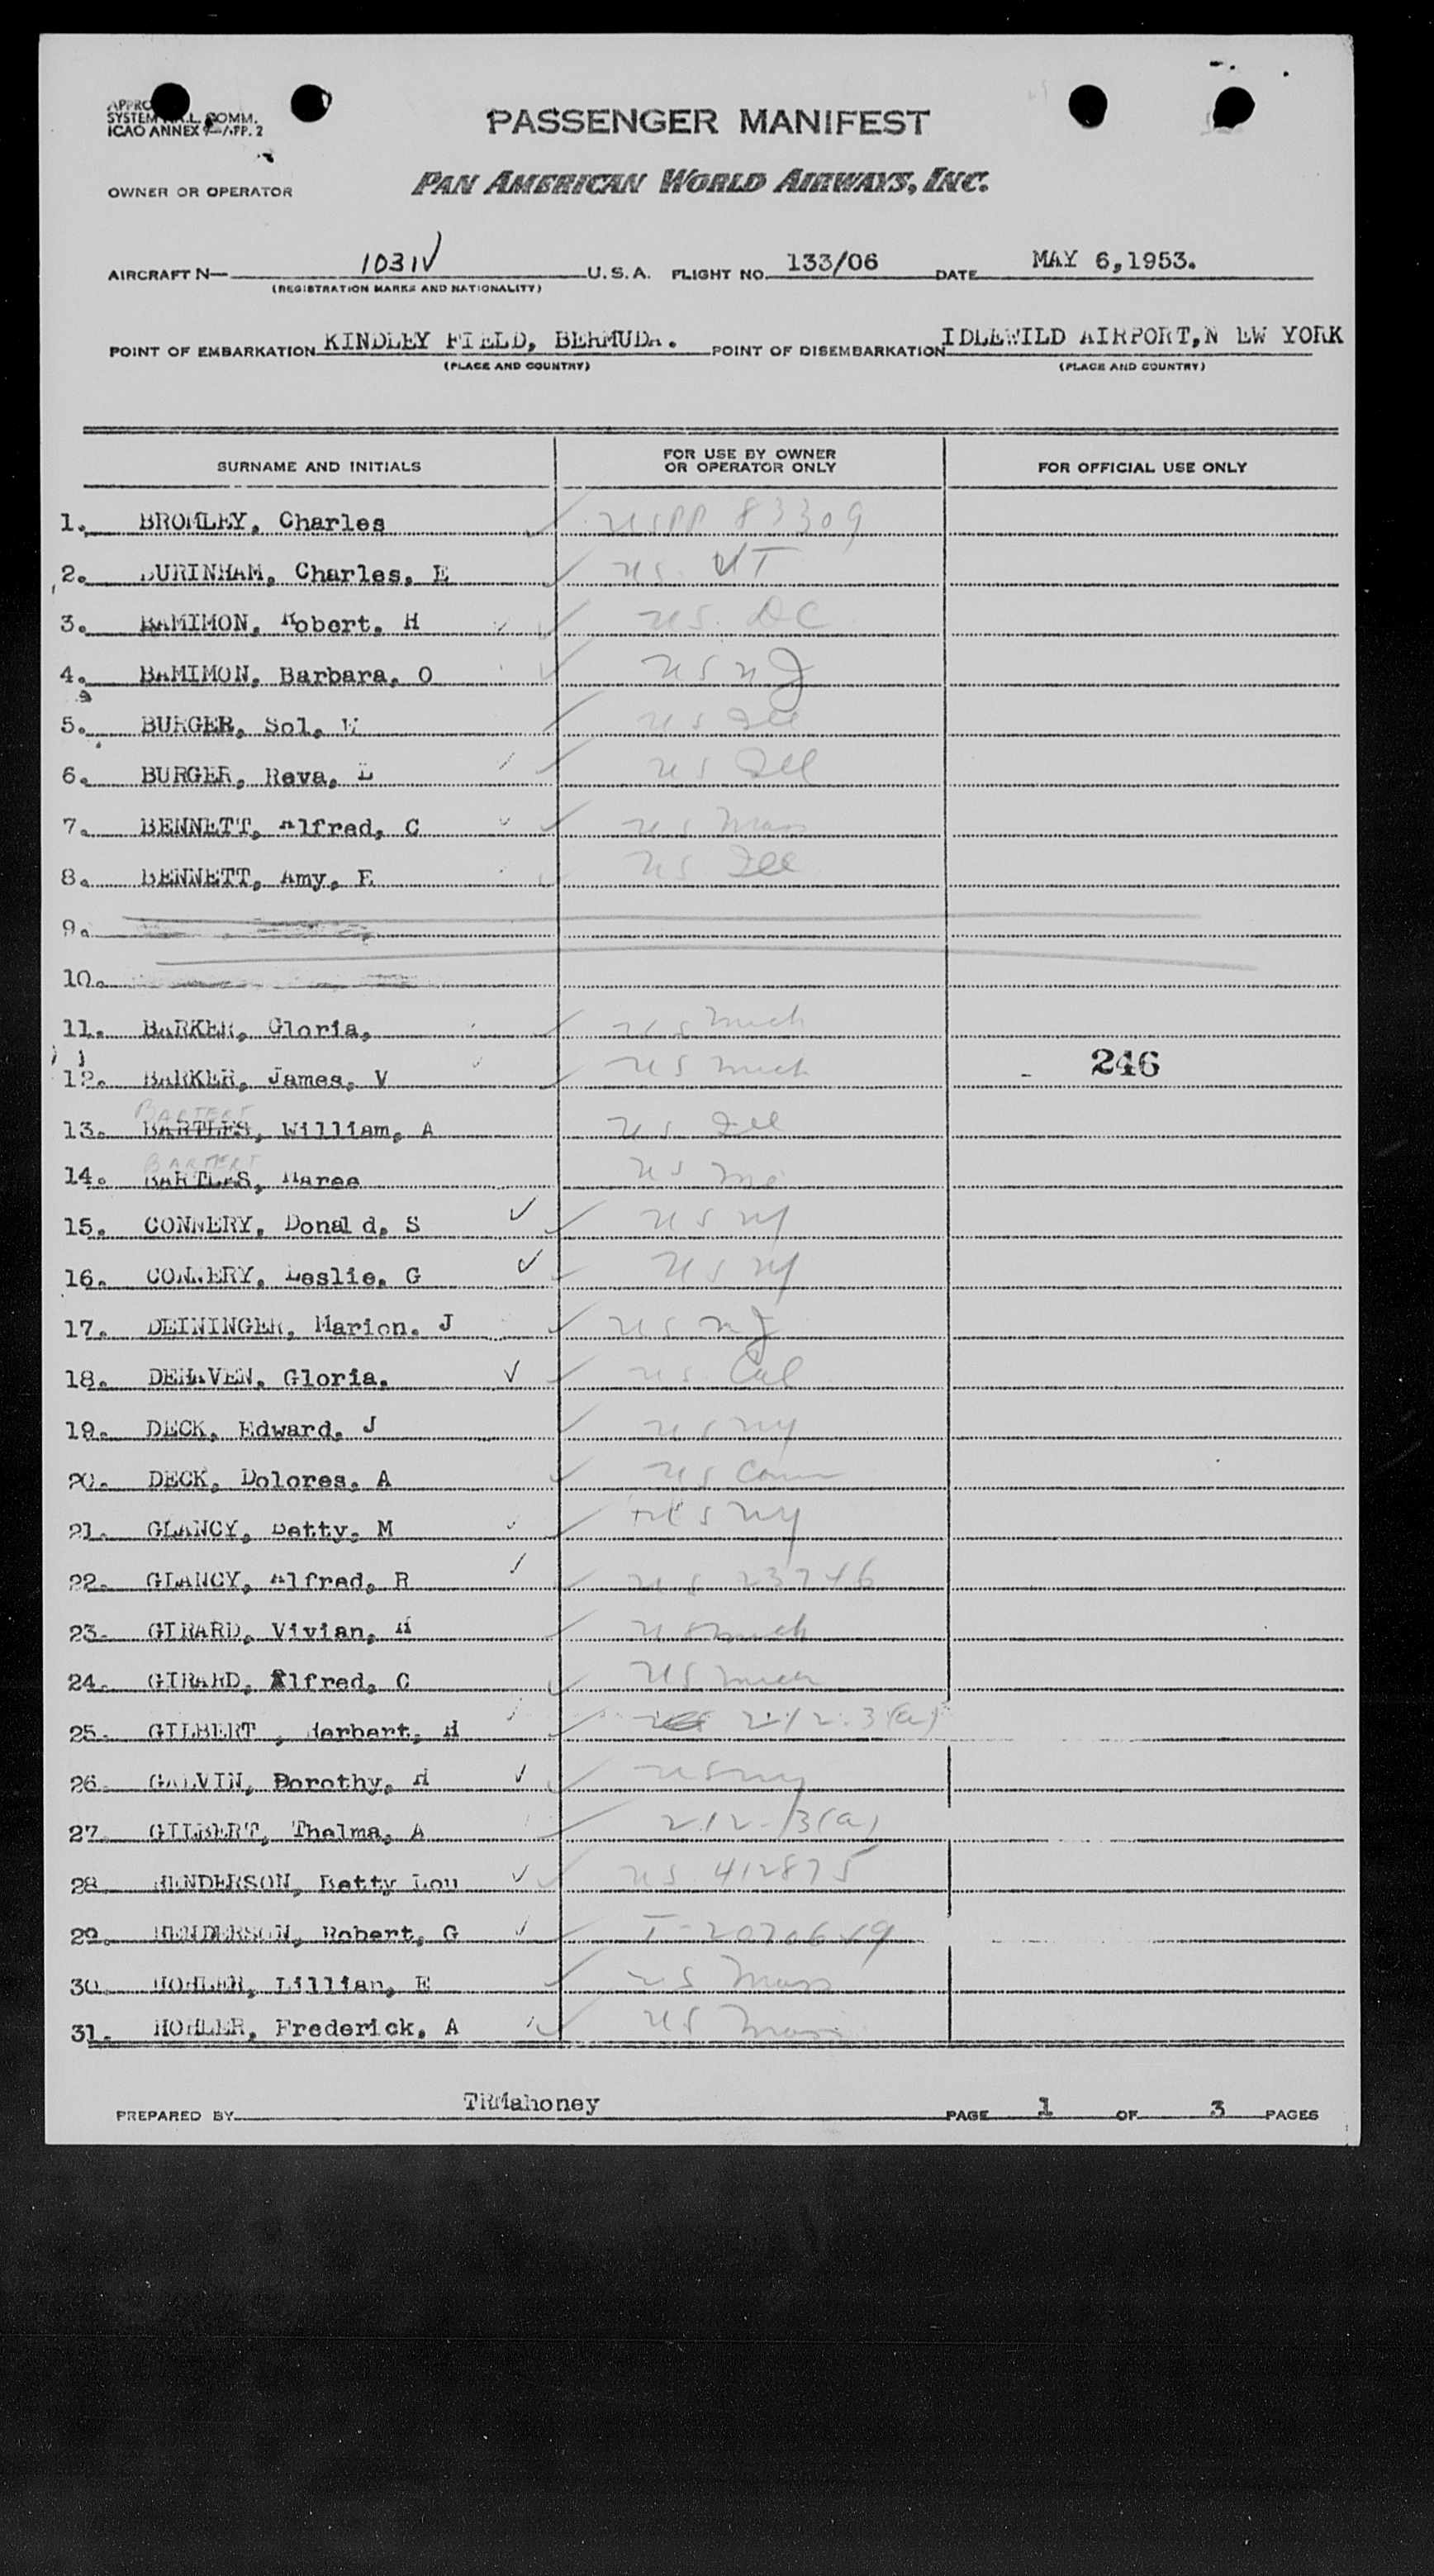 APPRO
SYSTEM COMM.
ICAO ANNEX APP. 2
PASSENGER MANIFEST
OWNER OR OPERATOR PAN AMERICAN WORLD AIRWAYS, INC.
AIRCRAFT N— 1031V U.S.A. FLIGHT NO. 133/06 DATE MAY 6,1953.
(REGISTRATION MARKS AND NATIONALITY)
POINT OF EMBARKATION KINDLEY FIELD, BERMUDA. POINT OF DISEMBARKATION IDLEWILD AIRPORT,N EW YORK
(PLACE AND COUNTRY) (PLACE AND COUNTRY)
SURNAME AND INITIALS FOR USE BY OWNER OR OPERATOR ONLY FOR OFFICIAL USE ONLY
1. BROMLEY, Charles USPP 83309
2. BURINHAM, Charles, E US. VT
3. BAMIMON, Robert, H US. DC
4. BAMIMON, Barbara, O US NJ
5. BURGER, Sol, US Ill
6. BURGER, Reva, US Ill
7. BENNETT, Alfred, C US Mass
8. BENNETT, Amy, E US Ill
9.
10.
11. BARKER, Gloria, US Mich
12. BARKER, James, V US Mich 246
BARTERT
13. BARTLES, William, A US Ill
BARTERT
14. BARTLES, Maree US Mo
15. CONNERY, Donal d, S US NY
16. CONNERY, Leslie, G US NY
17. DEININGER, Marion. J US NJ
18. DEHAVEN, Gloria. US. Cal
19. DECK, Edward, J US NY
20. DECK, Dolores, A US Conn
21. GLANCY, Betty, M US NY
22. GLANCY, Alfred, R US 23746
23. GIRARD, Vivian, US Mich
24. GIRARD, Alfred, C US Mich
25. GILBERT , Herbert, H 212.3(a)
26. GALVIN, Dorothy, H US NY
27. GILBERT, Thelma, A 212.3(a)
28 HENDERSON, Betty Lou US 412875
29. HENDERSON, Robert, G
30. HOHLER, Lillian, E US Mass
31. HOHLER, Frederick, A US Mass
PREPARED BY TRMahoney PAGE 1 OF 3 PAGES